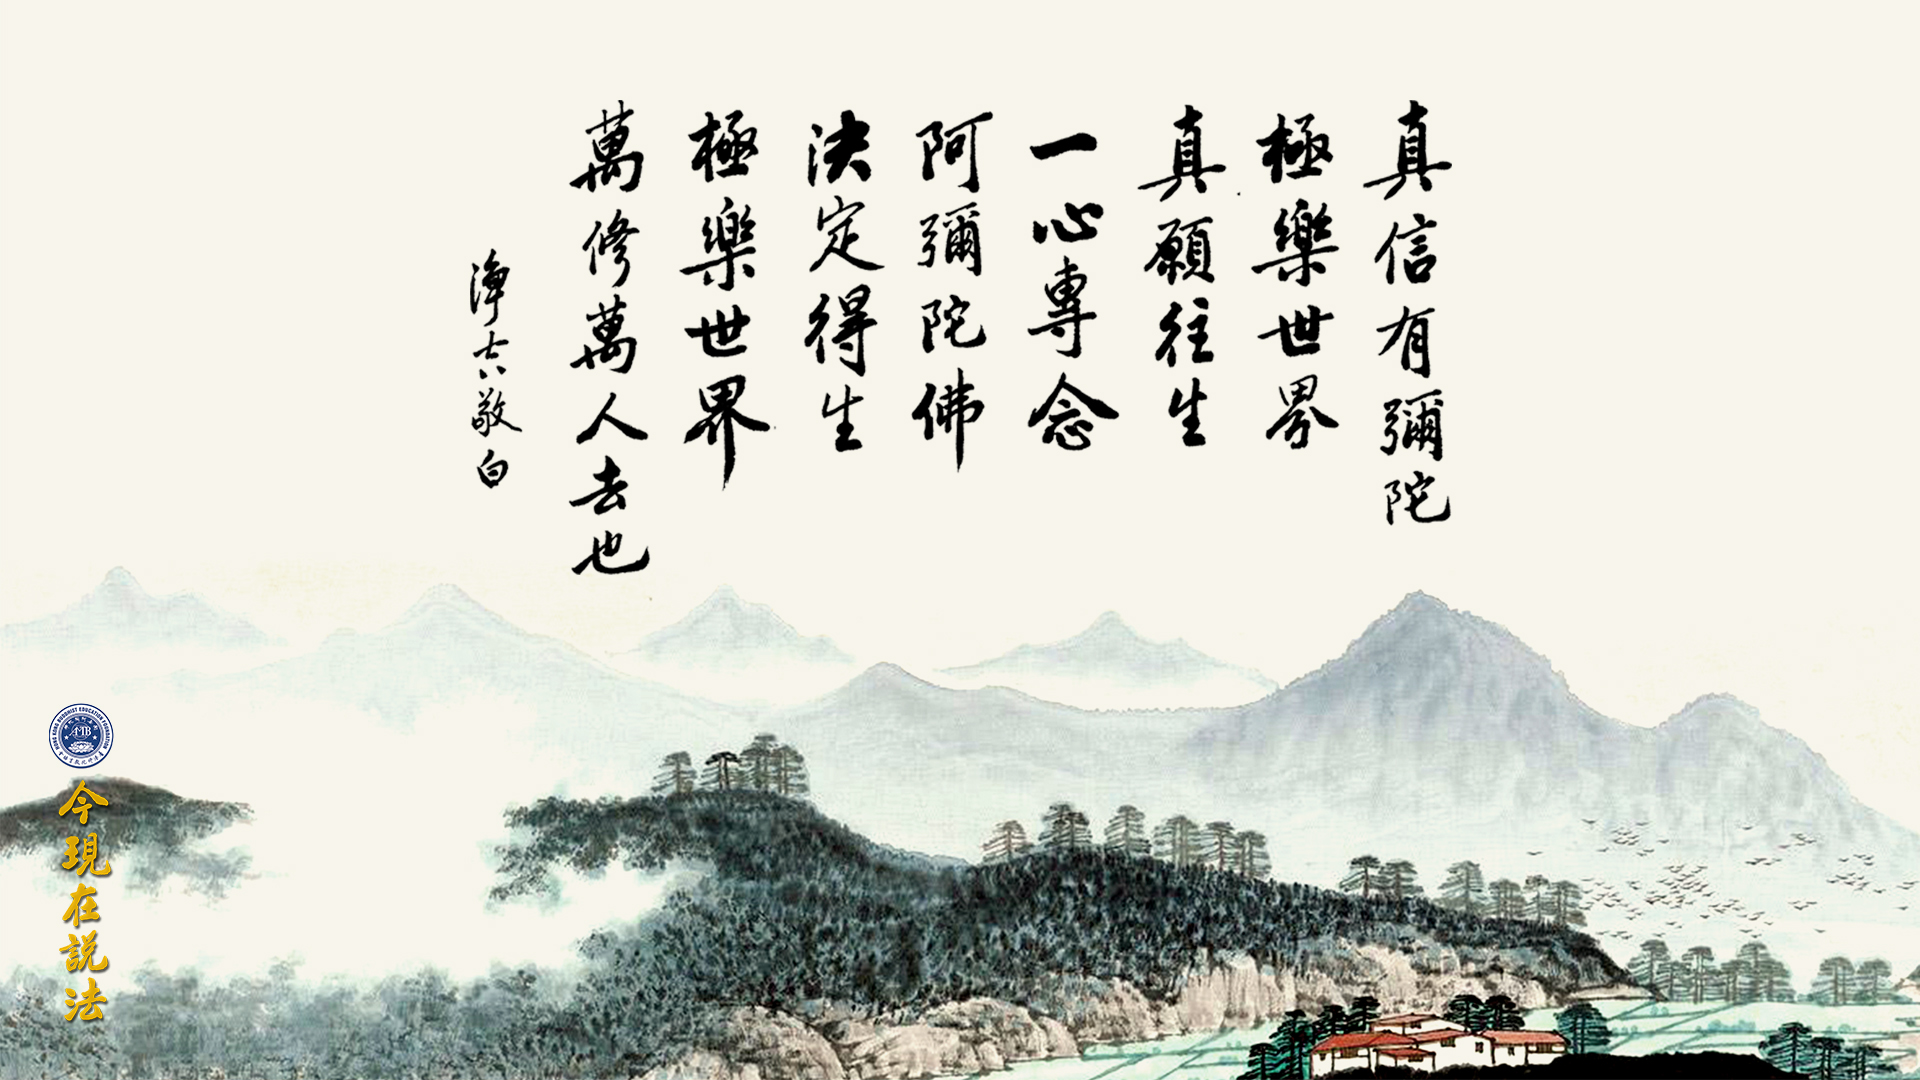 真信有彌陀
極樂世界
真願往生
一心專念
阿彌陀佛
決定得生
極樂世界
萬修萬人去也
敬白
HONG KONG BUDDHIST EDUCATION FOUNDATION
AMTB
今現在說法